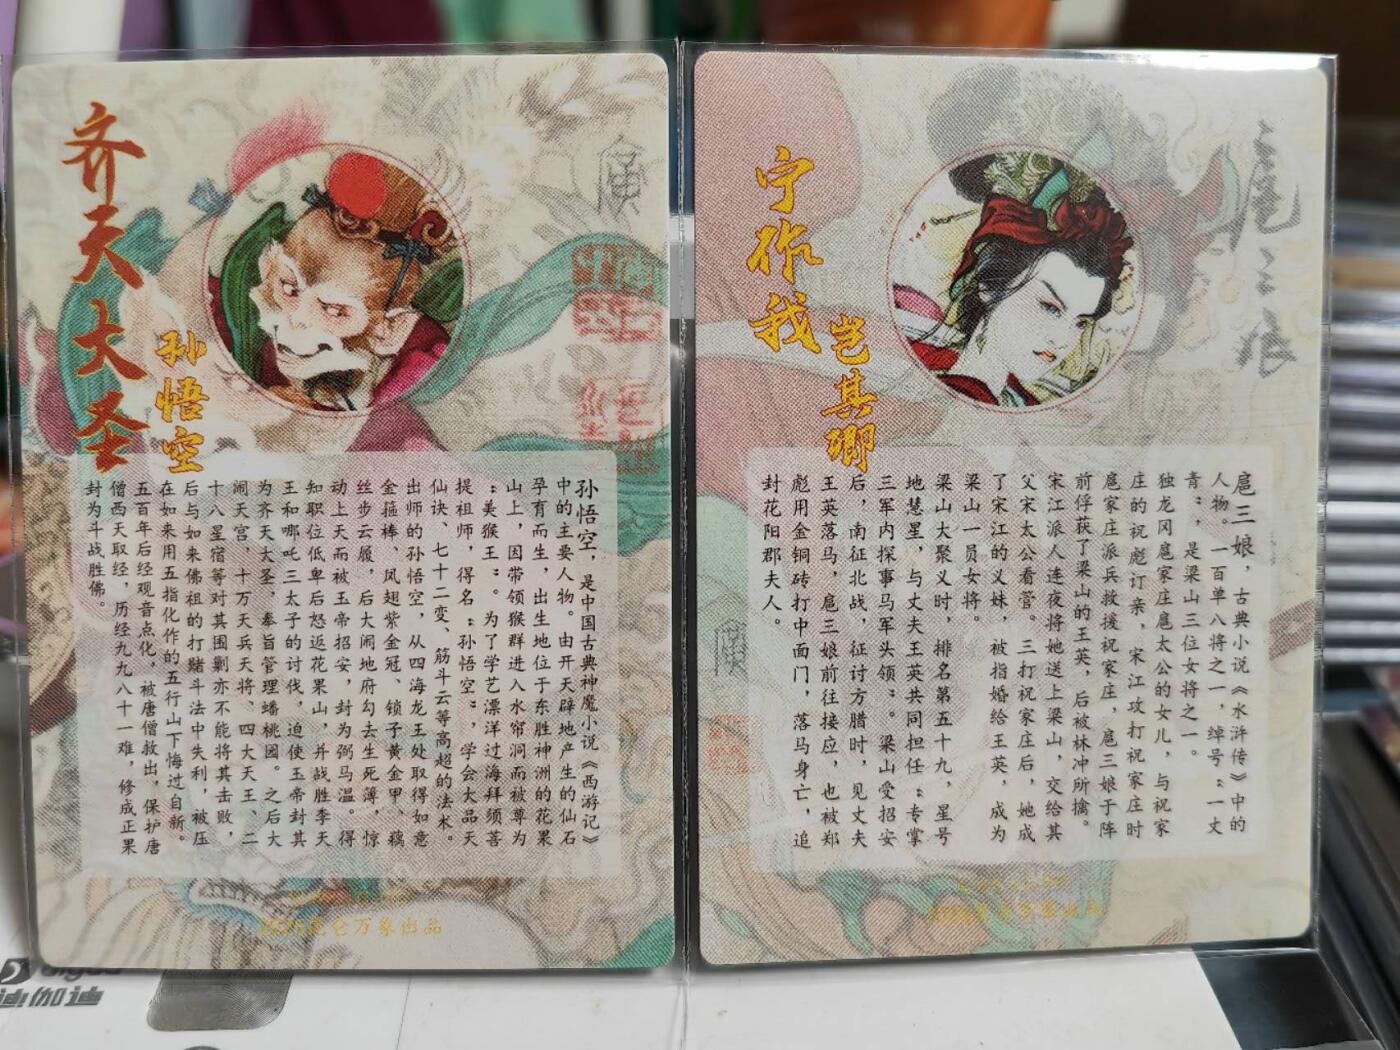 齐天大圣
孙悟空
孙悟空，是中国古典神魔小说《西游记》
中的主要人物。由开天辟地产生的仙石
孕育而生，出生地位于东胜神洲的花果
山上，因带领猴群进入水帘洞而被尊为
“美猴王”。为了学艺漂洋过海拜须菩
提祖师，得名“孙悟空”，学会大品天
仙诀、七十二变、筋斗云等高超的法术。
出师的孙悟空，从四海龙王处取得如意
金箍棒、凤翅紫金冠、锁子黄金甲、藕
丝步云履，后大闹地府勾去生死薄，惊
动上天而被玉帝招安，封为弼马温，得
知职位低卑后怒返花果山，并战胜李天
王和哪吒三太子的讨伐，迫使玉帝封其
为齐天大圣，奉旨管理蟠桃园。之后大
闹天宫，十万天兵天将、四大天王、二
十八星宿等对其围剿亦不能将其击败，
后与如来佛祖的打赌斗法中失利，被压
在如来用五指化作的五行山下悔过自新。
五百年后经观音点化，被唐僧救出，保护唐
僧西天取经，历经九九八十一难，修成正果
封为斗战胜佛。
昆仑万象出品
宁作我
岂其卿
扈三娘
扈三娘，古典小说《水浒传》中的
人物。一百单八将之一，绰号“一丈
青”，是梁山三位女将之一。
独龙冈扈家庄扈太公的女儿，与祝家
庄的祝彪订亲，宋江攻打祝家庄时
扈家庄派兵救援祝家庄，扈三娘于阵
前俘获了梁山的王英，后被林冲所擒。
宋江派人连夜将她送上梁山，交给其
父宋太公看管。三打祝家庄后，她成
了宋江的义妹，被指婚给王英，成为
梁山一员女将。
梁山大聚义时，排名第五十九，星号
地慧星，与丈夫王英共同担任“专掌
三军内探事马军头领”。梁山受招安
后，南征北战，征讨方腊时，见丈夫
王英落马，扈三娘前往接应，也被郑
彪用金铜砖打中面门，落马身亡，追
封花阳郡夫人。
迪伽迪